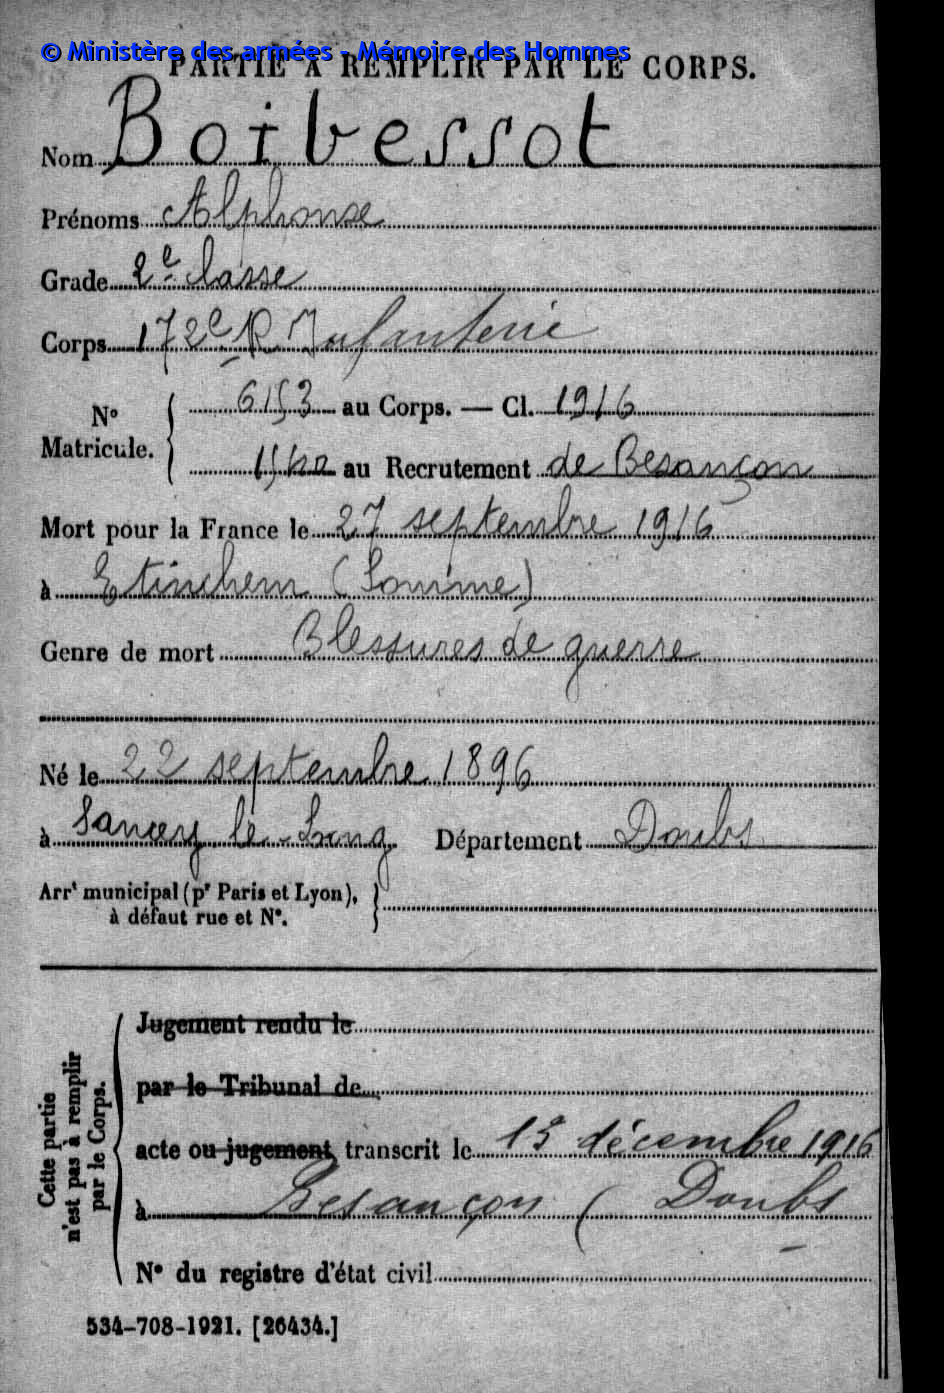 © Ministère des armées - Mémoire des Hommes
PARTIE À REMPLIR PAR LE CORPS.
Nom Boibessot
Prénoms Alphonse
Grade 2e classe
Corps 172e R Infanterie
N° Matricule. 6153 au Corps. — Cl. 1916
au Recrutement de Besançon
Mort pour la France le 27 septembre 1916
à Etinehem (Somme)
Genre de mort Blessures de guerre
Né le 22 septembre 1896
à Sancey le-Long Département Doubs
Arrt municipal (pr Paris et Lyon),
à défaut rue et N°.
Cette partie
n'est pas à remplir
par le Corps.
Jugement rendu le
par le Tribunal de
acte ou jugement transcrit le décembre 1916
à Besançon ( Doubs
N° du registre d'état civil
534-708-1921. [26434.]